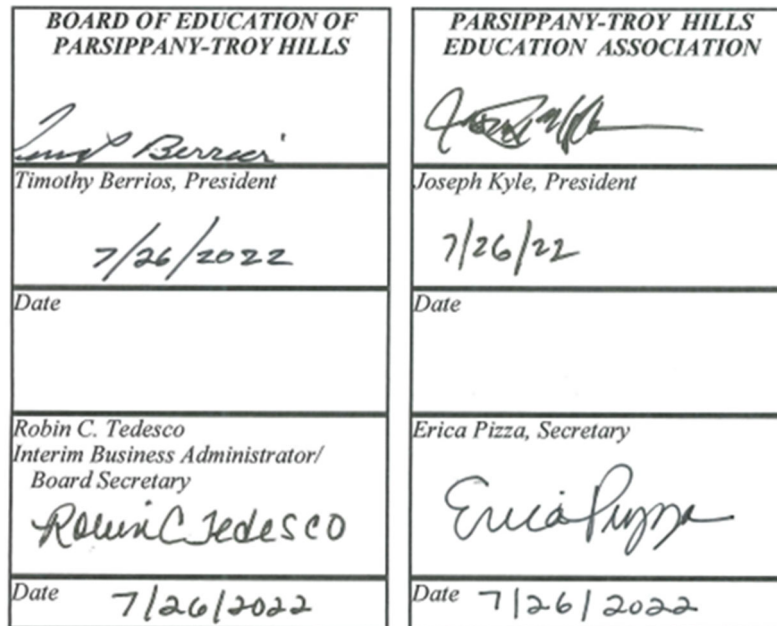 BOARD OF EDUCATION OF
PARSIPPANY-TROY HILLS
Berrios
Timothy Berrios, President
7/26/2022
Date
Robin C. Tedesco
Interim Business Administrator/
Board Secretary
Robin C Tedesco
Date 7/26/2022
PARSIPPANY-TROY HILLS
EDUCATION ASSOCIATION
Joseph Kyle, President
7/26/22
Date
Erica Pizza, Secretary
Erica Pizza
Date 7/26/2022